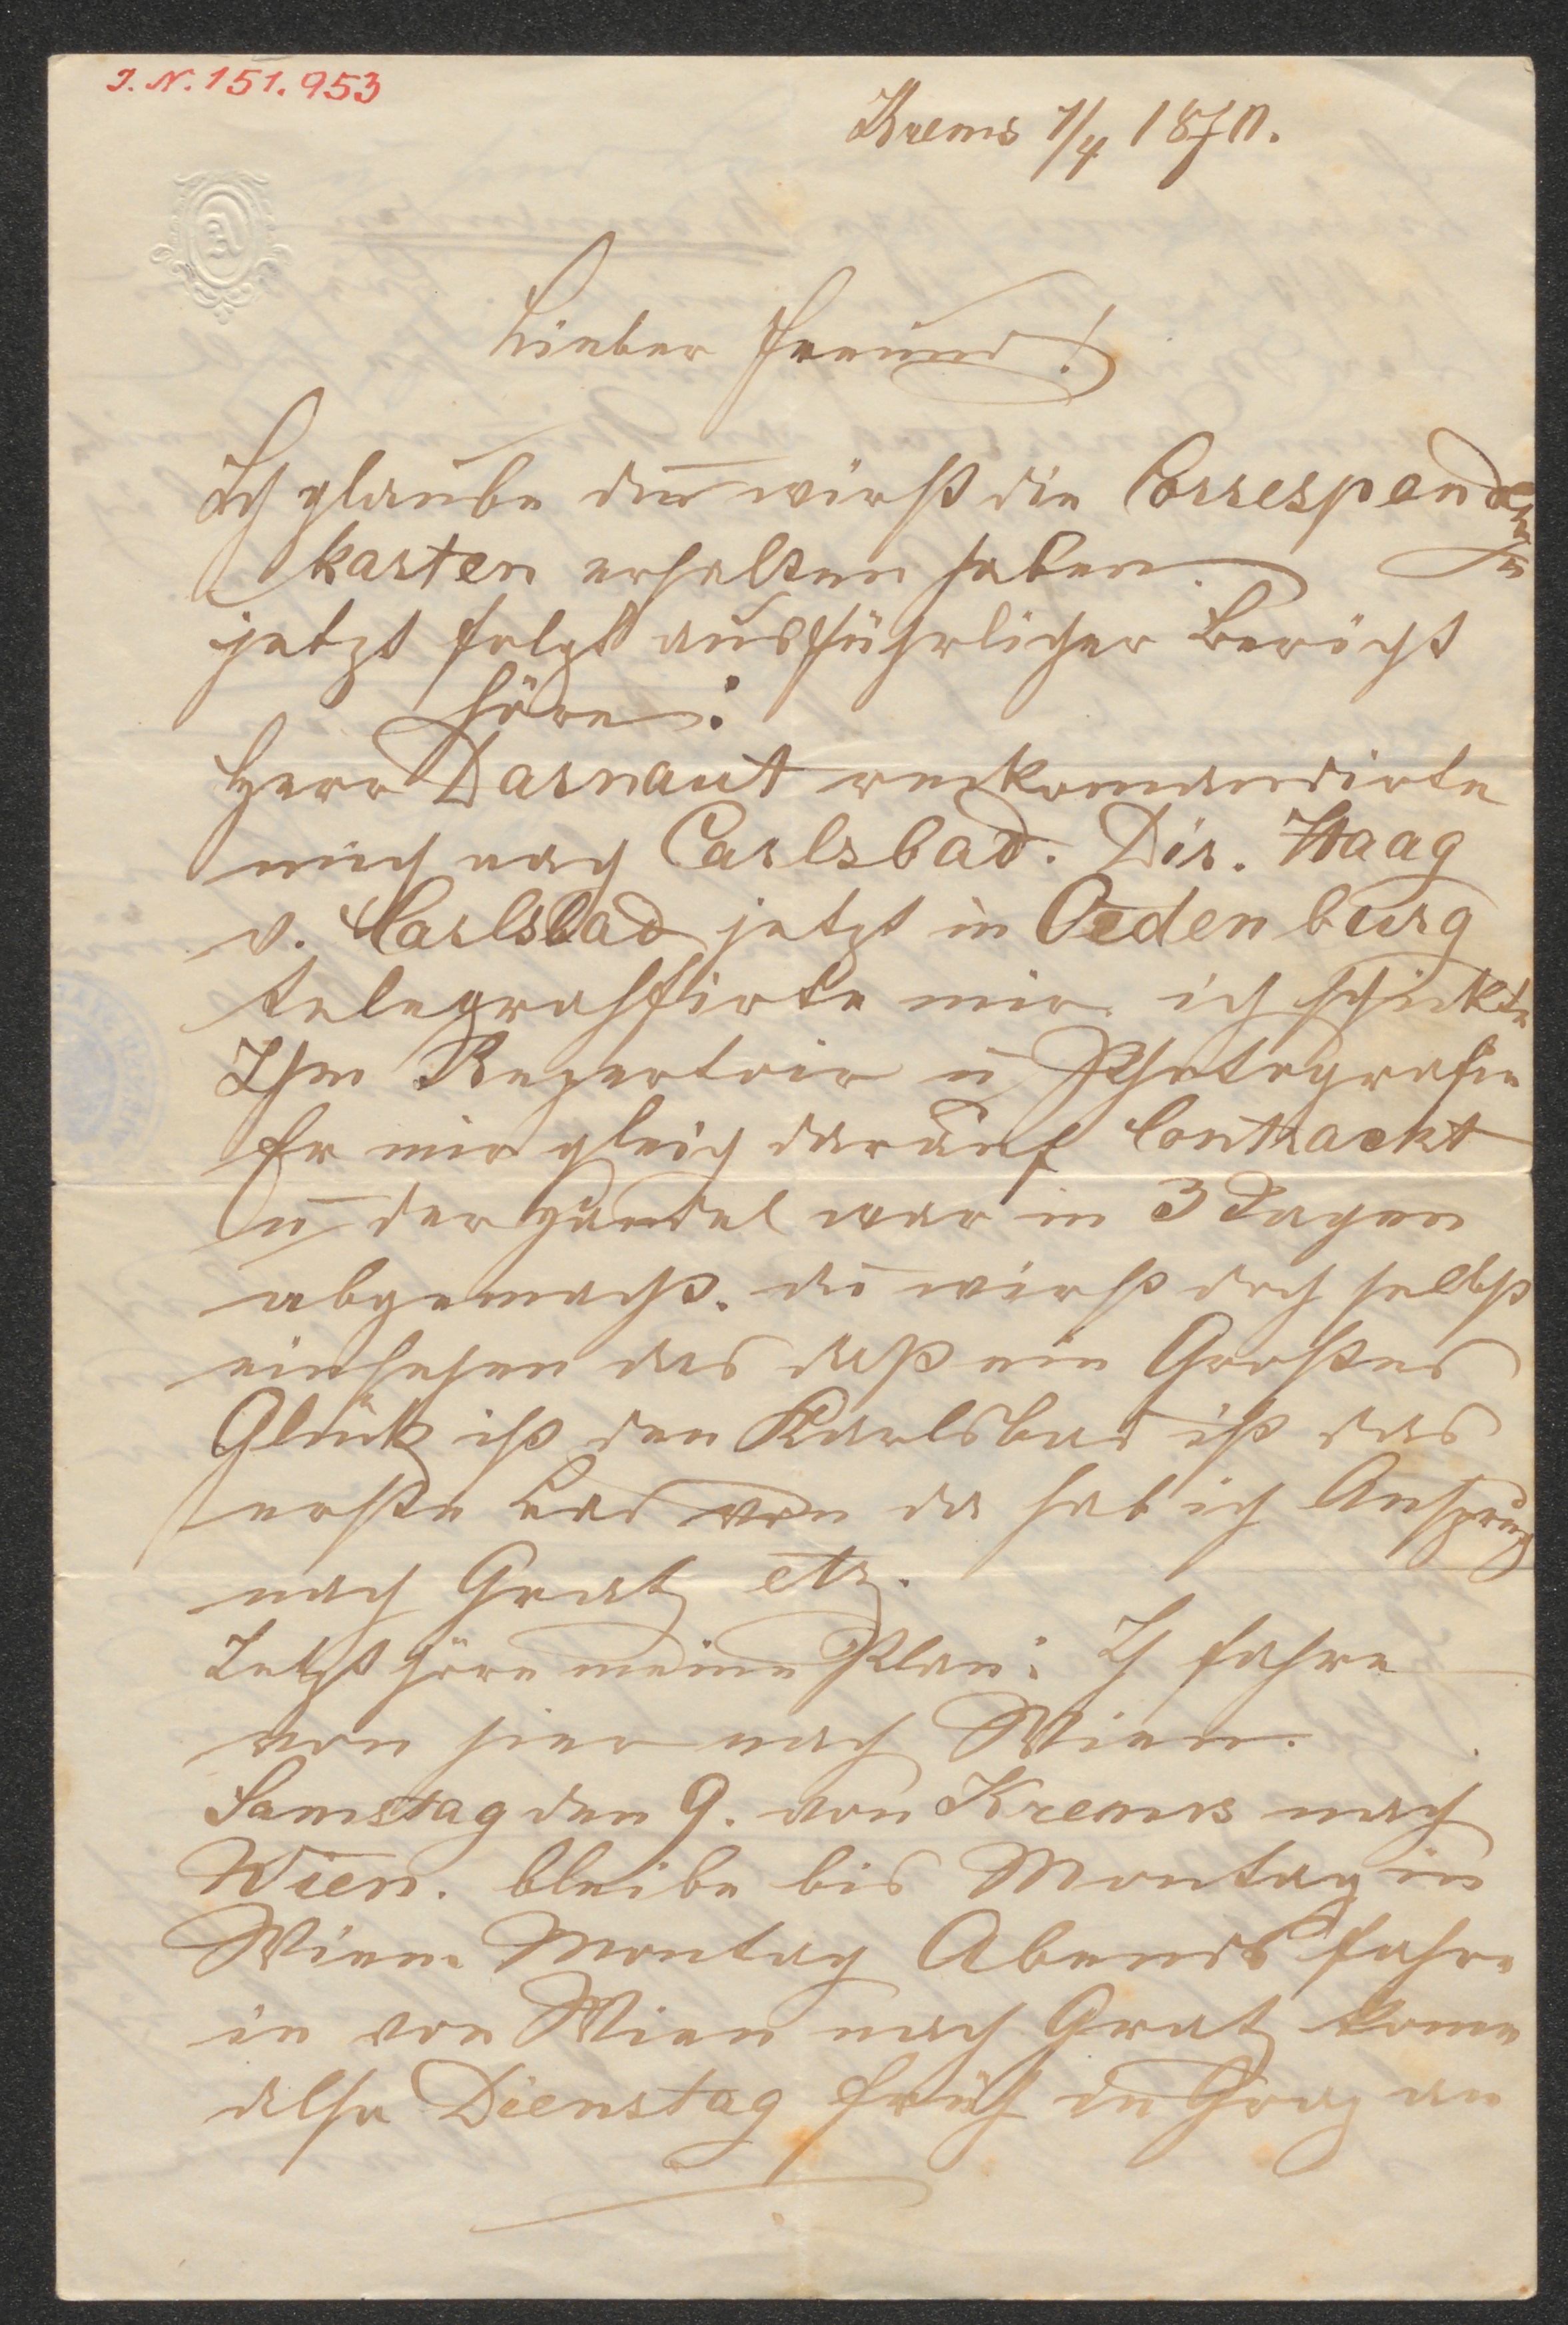 I. N. 151.953
Krems 7/4 1870.
Lieber Freund!
Ich glaube du wirst die Correspondenz
karten erhalten haben.
jetzt folgt ausführlicher Bericht
höre:
Herr Darnaut reckomandirte
mich nach Carlsbad. Dir. Haag
v. Carlsbad jetzt in Oedenburg
telegraffirte mir ich schickte
Ihm Repertoir u Photografie
Er mir gleich darauf Contrackt
u der Handel war in 3 Tagen
abgemacht. du wirst doch selbst
einsehen das daß ein Großes
Glück ist den Karlsbad ist das
erste Bad von da hab ich Anspruch
nach Gratz etz.
Jetzt höre meine Plan: Ich fahre
von hier nach Wien.
Samstag den 9. von Krems nach
Wien. bleibe bis Montag in
Wien. Montag Abends fahre
in von Wien nach Gratz kome
also Dienstag früh in Graz an